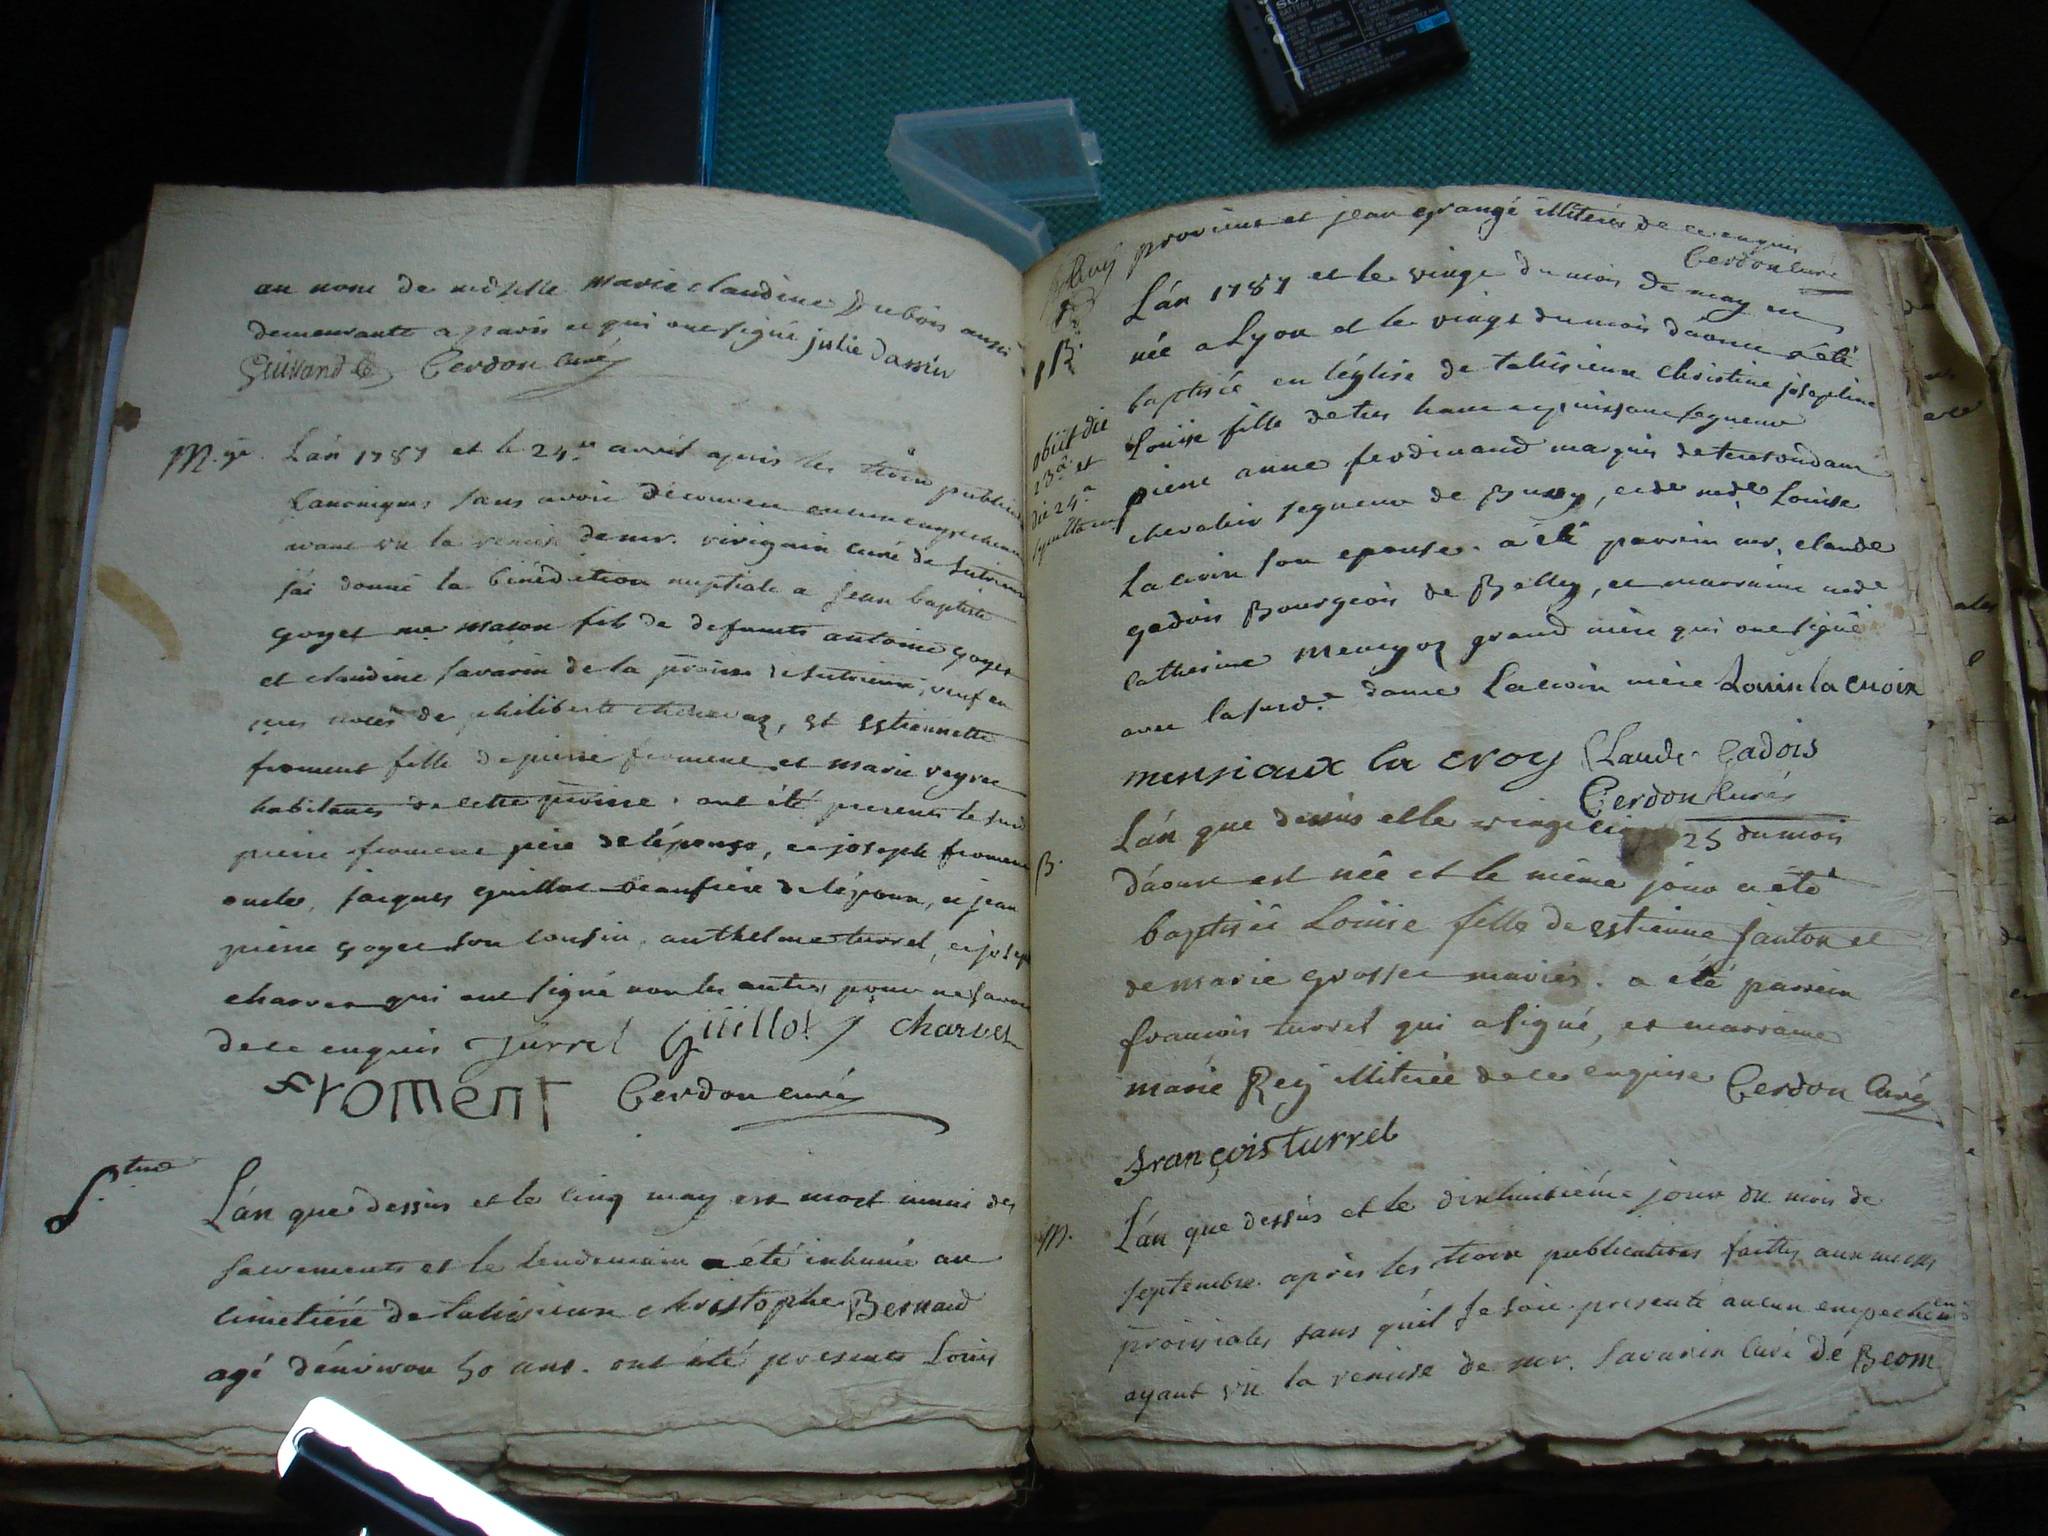 au nom de mdselle marie claudine Dubois aussi
demeurante a paris et qui ont signé julie dassin
Cerdon curé
M.ge
L'an 1787 et le 24me avril apres les trois public
canoniques sans avoir decouvert aucun empechem
ayant vu la remise de mr. curé de Sutrieu
j'ai donné la bénédiction nuptiale a jean baptiste
goyet me masson fils de defunts antoine goyet
et claudine savarin de la proisse de Sutrieu, veuf en
noces de philiberte, et estiennette
froment fille de pierre froment et marie veyret
habitants de cette proisse. ont été presents le susd
pierre froment pere de l'épouse, et joseph froment
oncle, jacques guillot beaufrere de l'époux, et jean
pierre goyet son cousin, anthelme turrel, et joseph
charvet qui ont signé non les autres pour ne savoir
de ce enquis Turrel Guillot J charvet
Froment Cerdon curé
S.ture
L'an que dessus et le cinq may est mort muni des
sacrements et le lendemain a été inhumé au
cimetiére de talissieux christophe Bernard
agé d'environ 50 ans. ont été presents Louis
et jean illiterés de ce enquis
Cerdon curé
L'an 1787 et le vingt du mois de may est
née a Lyon et le vingt du mois d'aout a été
B.
baptisée en l'église de talissieux christine josephine
Louise fille de tres haut et puissant segneur
obiit die
23a et
die 24a
sepulta
pierre anne ferdinand marquis de
chevalier segneur de Bussy, et de mde Louise
Lacroix son epouse. a été parrain mr. claude
gadois Bourgeois de Belley, et marraine mde
catherine grand mère qui ont signé
avec la susd.e dame Lacroix mère Louise la croix
mensiaux la croy Claude Gadois
Cerdon Curé
B.
L'an que dessus et le vingt 25 du mois
d'aoust est née et le même jour a été
baptisée Louise fille de estienne janton et
de marie grosset mariés. a été parrein
francois turrel qui a signé, et marraine
marie Rey illiterée de ce enquise Cerdon Curé
françois turrel
M.
L'an que dessus et le dixhuitiéme jour du mois de
septembre. après les trois publications faittes aux messes
proissiales sans qu'il se soit presenté aucun empechem
ayant vu la remise de mr. Savarin Curé dé Beom